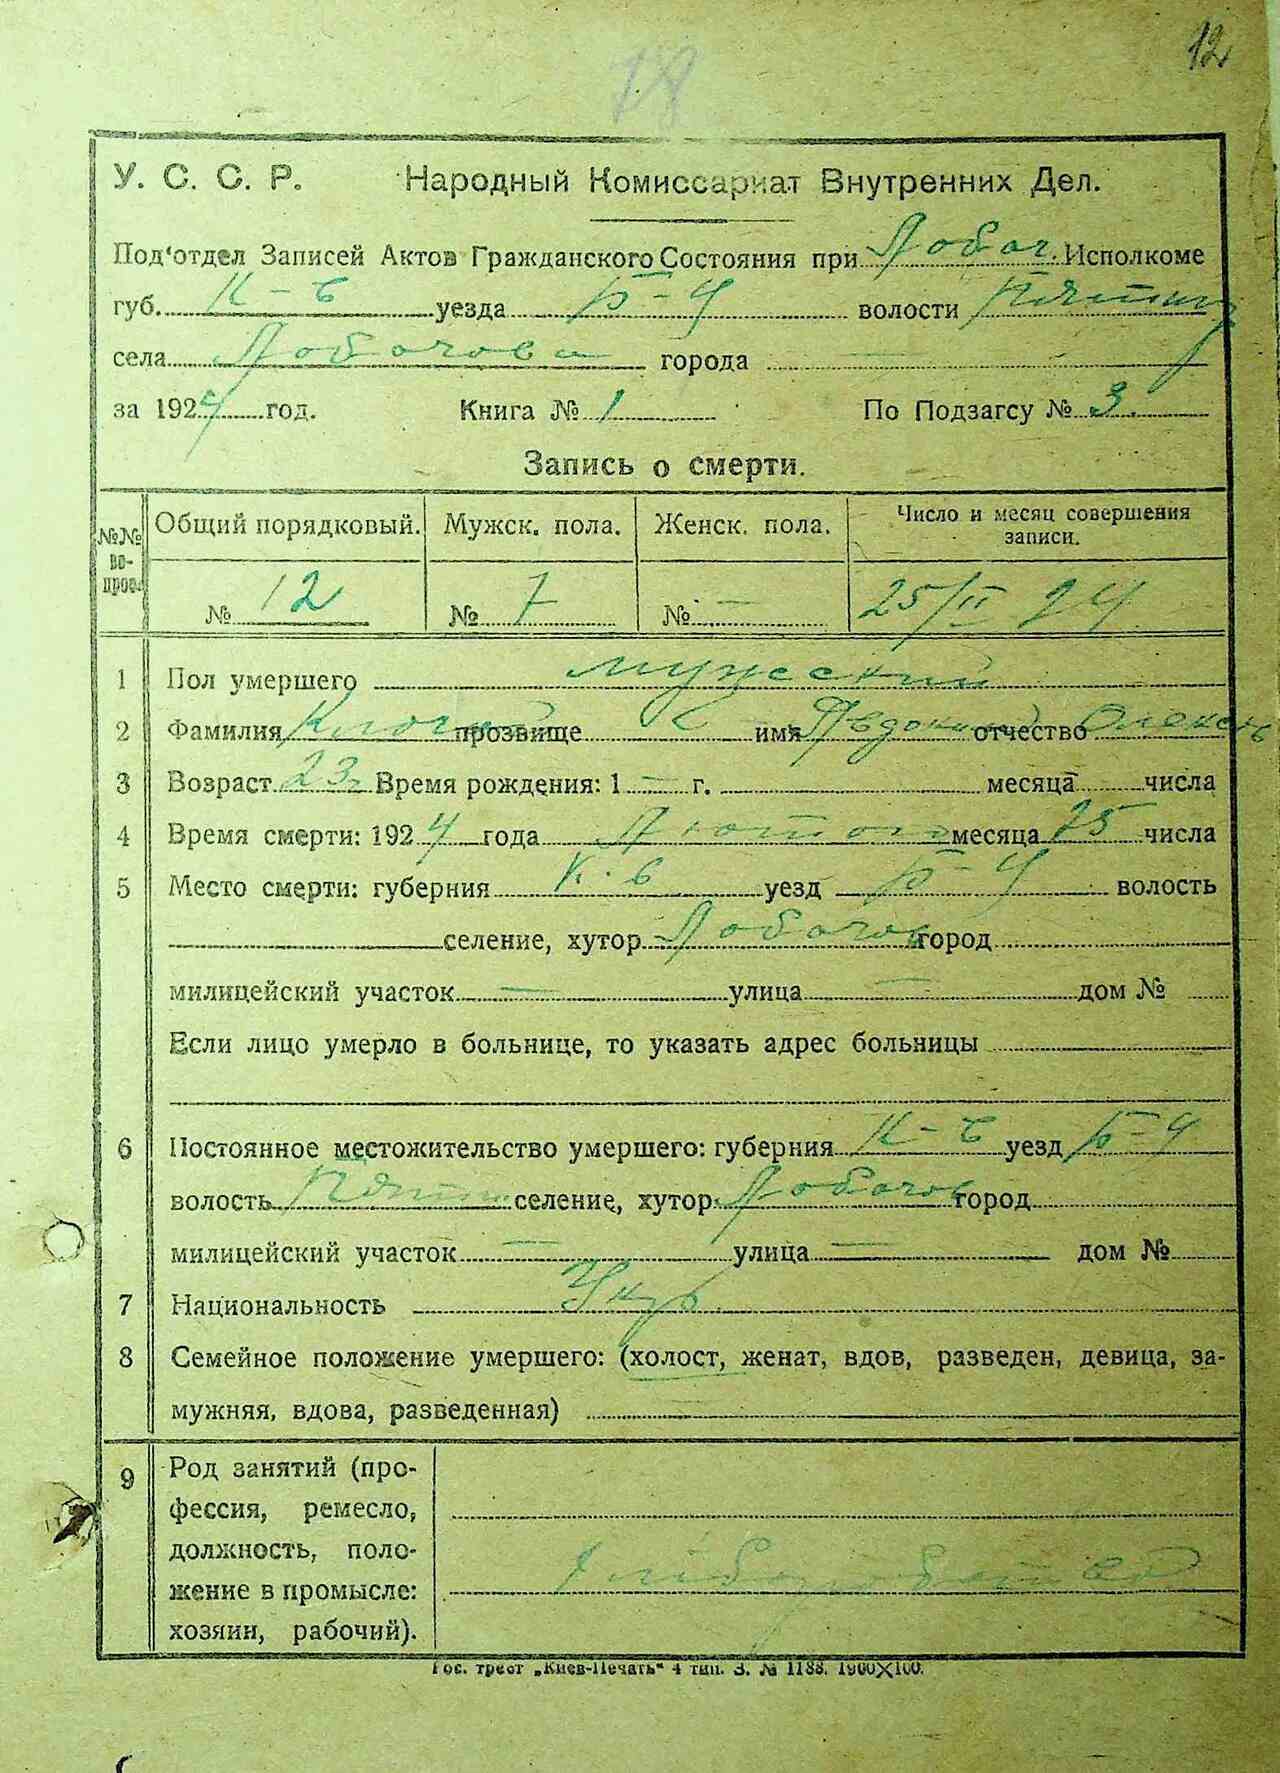 12
18
У. С. С. Р. Народный Комиссариат Внутренних Дел.
Под'отдел Записей Актов Гражданского Состояния при Лобач. Исполкоме
губ. К-в уезда Б-Ц волости Пятигор
села Лобачова города
за 1924 год. Книга № 1 По Подзагсу № 3.
Запись о смерти.
№№ вопрос. Общий порядковый. Мужск. пола. Женск. пола. Число и месяц совершения записи.
№ 12 № 7 № — 25/II 24
1 Пол умершего мужеский
2 Фамилия прозвище имя Явдоким отчество Олексѣ
3 Возраст 23 г Время рождения: 1 — г. месяца числа
4 Время смерти: 1924 года Лютого месяца 25 числа
5 Место смерти: губерния К-в уезд Б-Ц волость
селение, хутор Лобачов город
милицейский участок — улица — дом №
Если лицо умерло в больнице, то указать адрес больницы
6 Постоянное местожительство умершего: губерния К-в уезд Б-Ц
волость Пяти селение, хутор Лобачов город
милицейский участок — улица — дом №
7 Национальность Укр.
8 Семейное положение умершего: (холост, женат, вдов, разведен, девица, за-
мужняя, вдова, разведенная)
9 Род занятий (про-
фессия, ремесло,
должность, поло-
жение в промысле:
хозяин, рабочий).
Гос. трест „Киев-Печать“ 4 тип. З. № 1188. 1900X100.